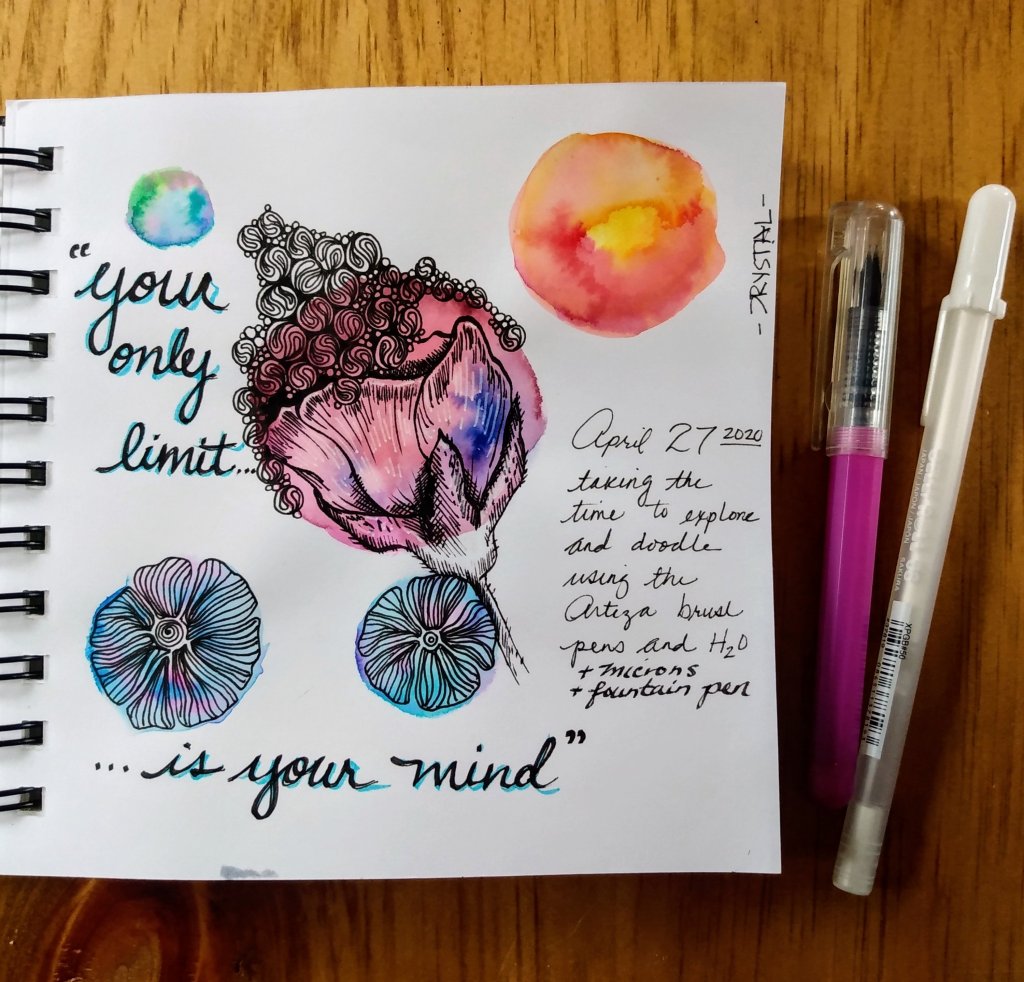 "your
only
limit...
... is your mind"
- CRYSTAL -
April 27 2020
taking the
time to explore
and doodle
using the
Arteza brush
pens and H₂O
+ microns
+ fountain pen
SAKURA
XPGB#50